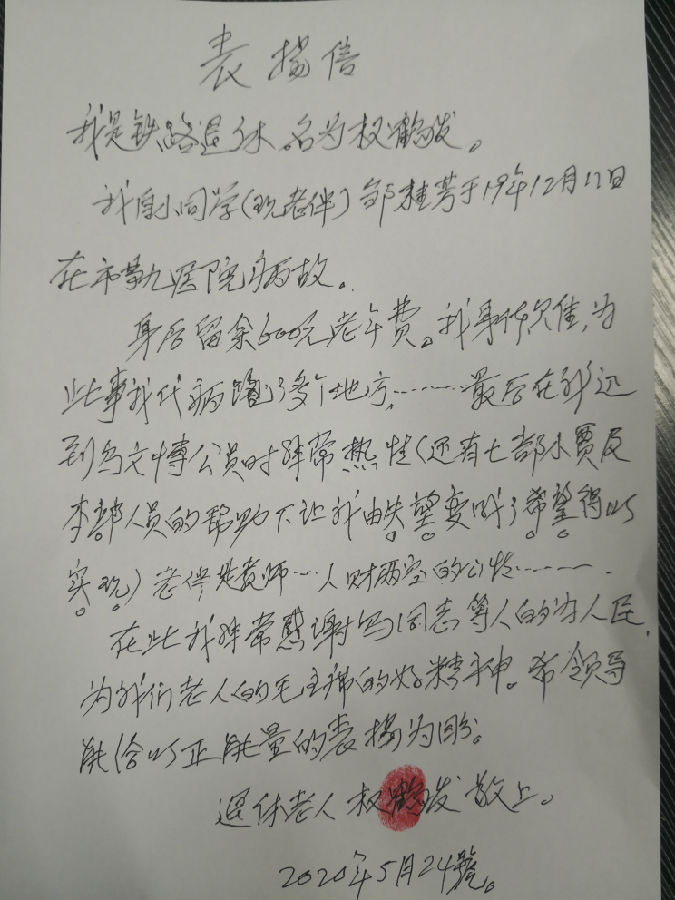 表扬信
我是铁路退休.名为权鹤发。
我自小同学(现老伴)邹桂芳于19年12月17日
在市勤医院病故.
身后留余600元老年费。我身体欠佳,为
此事我代病跑了多个地方………最后在我还
到乌文博公员时非常热情(还有七部小贾及
本部人员的帮助下让我由失望变成了希望得以
实现)老伴是教师…人财两空的心情………
在此我非常感谢乌同志等人的为人民,
为我们老人的毛主席的好精神。希领导
能给以正能量的表扬为盼。
退休老人 权鹤发 敬上。
2020年5月24號。